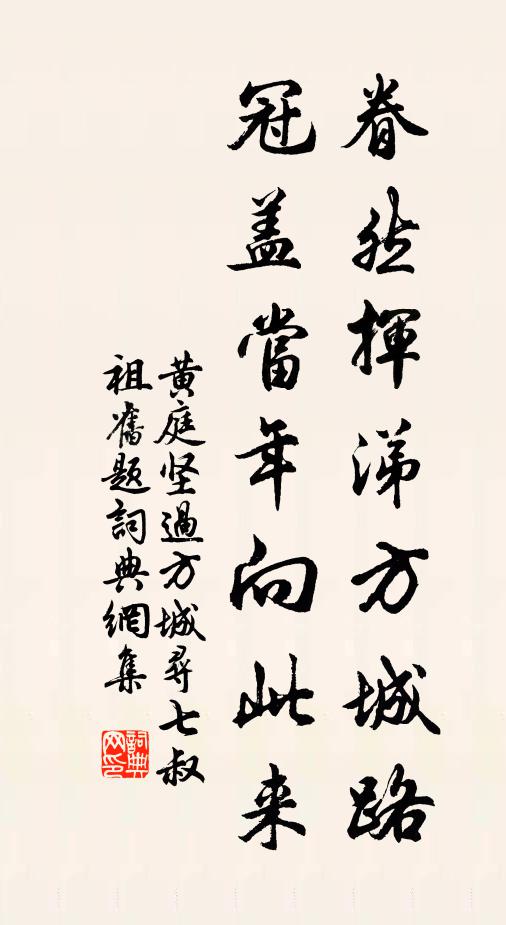 眷然揮涕方城路
冠盖當年向此来
黄庭坚過方城尋七叔
祖舊題詞典網集
詞典
网印